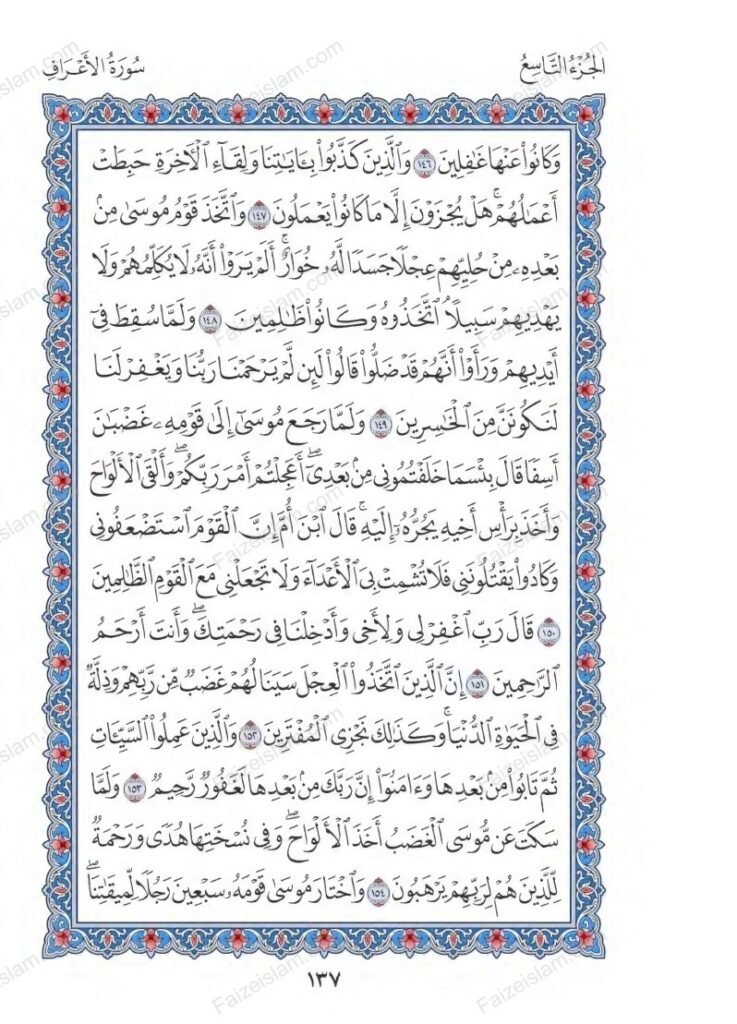 الجُزْءُ التَّاسِعُ
سُورَةُ الأَعْرَافِ
وَكَانُوا۟ عَنْهَا غَٰفِلِينَ ١٤٦ وَٱلَّذِينَ كَذَّبُوا۟ بِـَٔايَٰتِنَا وَلِقَآءِ ٱلْأٓخِرَةِ حَبِطَتْ
أَعْمَٰلُهُمْۚ هَلْ يُجْزَوْنَ إِلَّا مَا كَانُوا۟ يَعْمَلُونَ ١٤٧ وَٱتَّخَذَ قَوْمُ مُوسَىٰ مِنۢ
بَعْدِهِۦ مِنْ حُلِيِّهِمْ عِجْلًا جَسَدًا لَّهُۥ خُوَارٌۚ أَلَمْ يَرَوْا۟ أَنَّهُۥ لَا يُكَلِّمُهُمْ وَلَا
يَهْدِيهِمْ سَبِيلًاۘ ٱتَّخَذُوهُ وَكَانُوا۟ ظَٰلِمِينَ ١٤٨ وَلَمَّا سُقِطَ فِىٓ
أَيْدِيهِمْ وَرَأَوْا۟ أَنَّهُمْ قَدْ ضَلُّوا۟ قَالُوا۟ لَئِن لَّمْ يَرْحَمْنَا رَبُّنَا وَيَغْفِرْ لَنَا
لَنَكُونَنَّ مِنَ ٱلْخَٰسِرِينَ ١٤٩ وَلَمَّا رَجَعَ مُوسَىٰٓ إِلَىٰ قَوْمِهِۦ غَضْبَٰنَ
أَسِفًا قَالَ بِئْسَمَا خَلَفْتُمُونِى مِنۢ بَعْدِىٓۖ أَعَجِلْتُمْ أَمْرَ رَبِّكُمْۖ وَأَلْقَى ٱلْأَلْوَاحَ
وَأَخَذَ بِرَأْسِ أَخِيهِ يَجُرُّهُۥٓ إِلَيْهِۚ قَالَ ٱبْنَ أُمَّ إِنَّ ٱلْقَوْمَ ٱسْتَضْعَفُونِى
وَكَادُوا۟ يَقْتُلُونَنِى فَلَا تُشْمِتْ بِىَ ٱلْأَعْدَآءَ وَلَا تَجْعَلْنِى مَعَ ٱلْقَوْمِ ٱلظَّٰلِمِينَ
١٥٠ قَالَ رَبِّ ٱغْفِرْ لِى وَلِأَخِى وَأَدْخِلْنَا فِى رَحْمَتِكَۖ وَأَنتَ أَرْحَمُ
ٱلرَّٰحِمِينَ ١٥١ إِنَّ ٱلَّذِينَ ٱتَّخَذُوا۟ ٱلْعِجْلَ سَيَنَالُهُمْ غَضَبٌ مِّن رَّبِّهِمْ وَذِلَّةٌ
فِى ٱلْحَيَوٰةِ ٱلدُّنْيَاۚ وَكَذَٰلِكَ نَجْزِى ٱلْمُفْتَرِينَ ١٥٢ وَٱلَّذِينَ عَمِلُوا۟ ٱلسَّيِّـَٔاتِ
ثُمَّ تَابُوا۟ مِنۢ بَعْدِهَا وَءَامَنُوٓا۟ إِنَّ رَبَّكَ مِنۢ بَعْدِهَا لَغَفُورٌ رَّحِيمٌ ١٥٣ وَلَمَّا
سَكَتَ عَن مُّوسَى ٱلْغَضَبُ أَخَذَ ٱلْأَلْوَاحَۖ وَفِى نُسْخَتِهَا هُدًى وَرَحْمَةٌ
لِّلَّذِينَ هُمْ لِرَبِّهِمْ يَرْهَبُونَ ١٥٤ وَٱخْتَارَ مُوسَىٰ قَوْمَهُۥ سَبْعِينَ رَجُلًا لِّمِيقَٰتِنَاۖ
١٣٧
Faizeislam.com